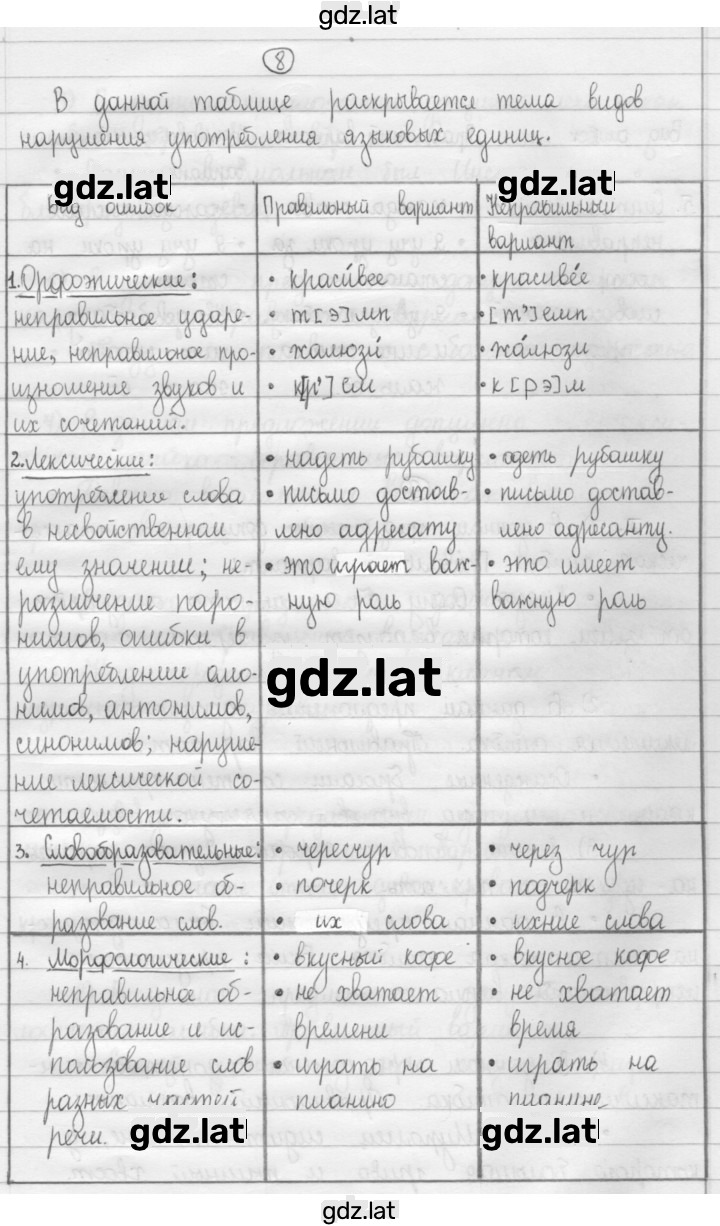 gdz.lat
8
В данной таблице раскрывается тема видов
нарушения употребления языковых единиц.
gdz.lat
gdz.lat
Вид ошибок
Правильный вариант
Неправильный
вариант
1. Орфоэпические:
неправильное ударе-
ние, неправильное про-
изношение звуков и
их сочетаний.
• краси́вее
• т[э]мп
• жалюзи́
• к[р']ем
• красиве́е
• [т']емп
• жа́люзи
• к[рэ]м
2. Лексические:
употребление слова
в несвойственном
ему значении; не-
различение паро-
нимов, ошибки в
употреблении омо-
нимов, антонимов,
синонимов; наруше-
ние лексической со-
четаемости.
• надеть рубашку
• письмо достав-
лено адресату
• это играет важ-
ную роль
• одеть рубашку
• письмо достав-
лено адресанту.
• это имеет
важную роль
gdz.lat
3. Словообразовательные:
неправильное об-
разование слов.
• чересчур
• почерк
• их слова
• через чур
подчерк
• ихние слова
4. Морфологические:
неправильное об-
разование и ис-
пользование слов
разных частей
речи.
• вкусный кофе
• не хватает
времени
• играть на
пианино
• вкусное кофе
• не хватает
время
• играть на
пианине
gdz.lat
gdz.lat
gdz.lat